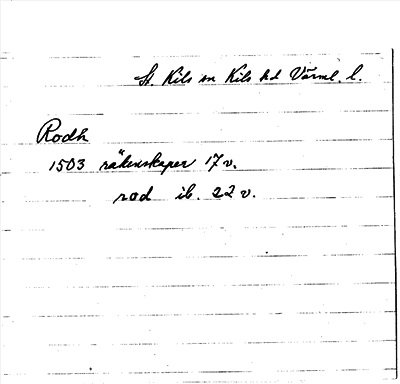 St. Kils sn Kils hd Värml. l.
Rodh
1503 räkenskaper 17 v.
rod ib. 22 v.